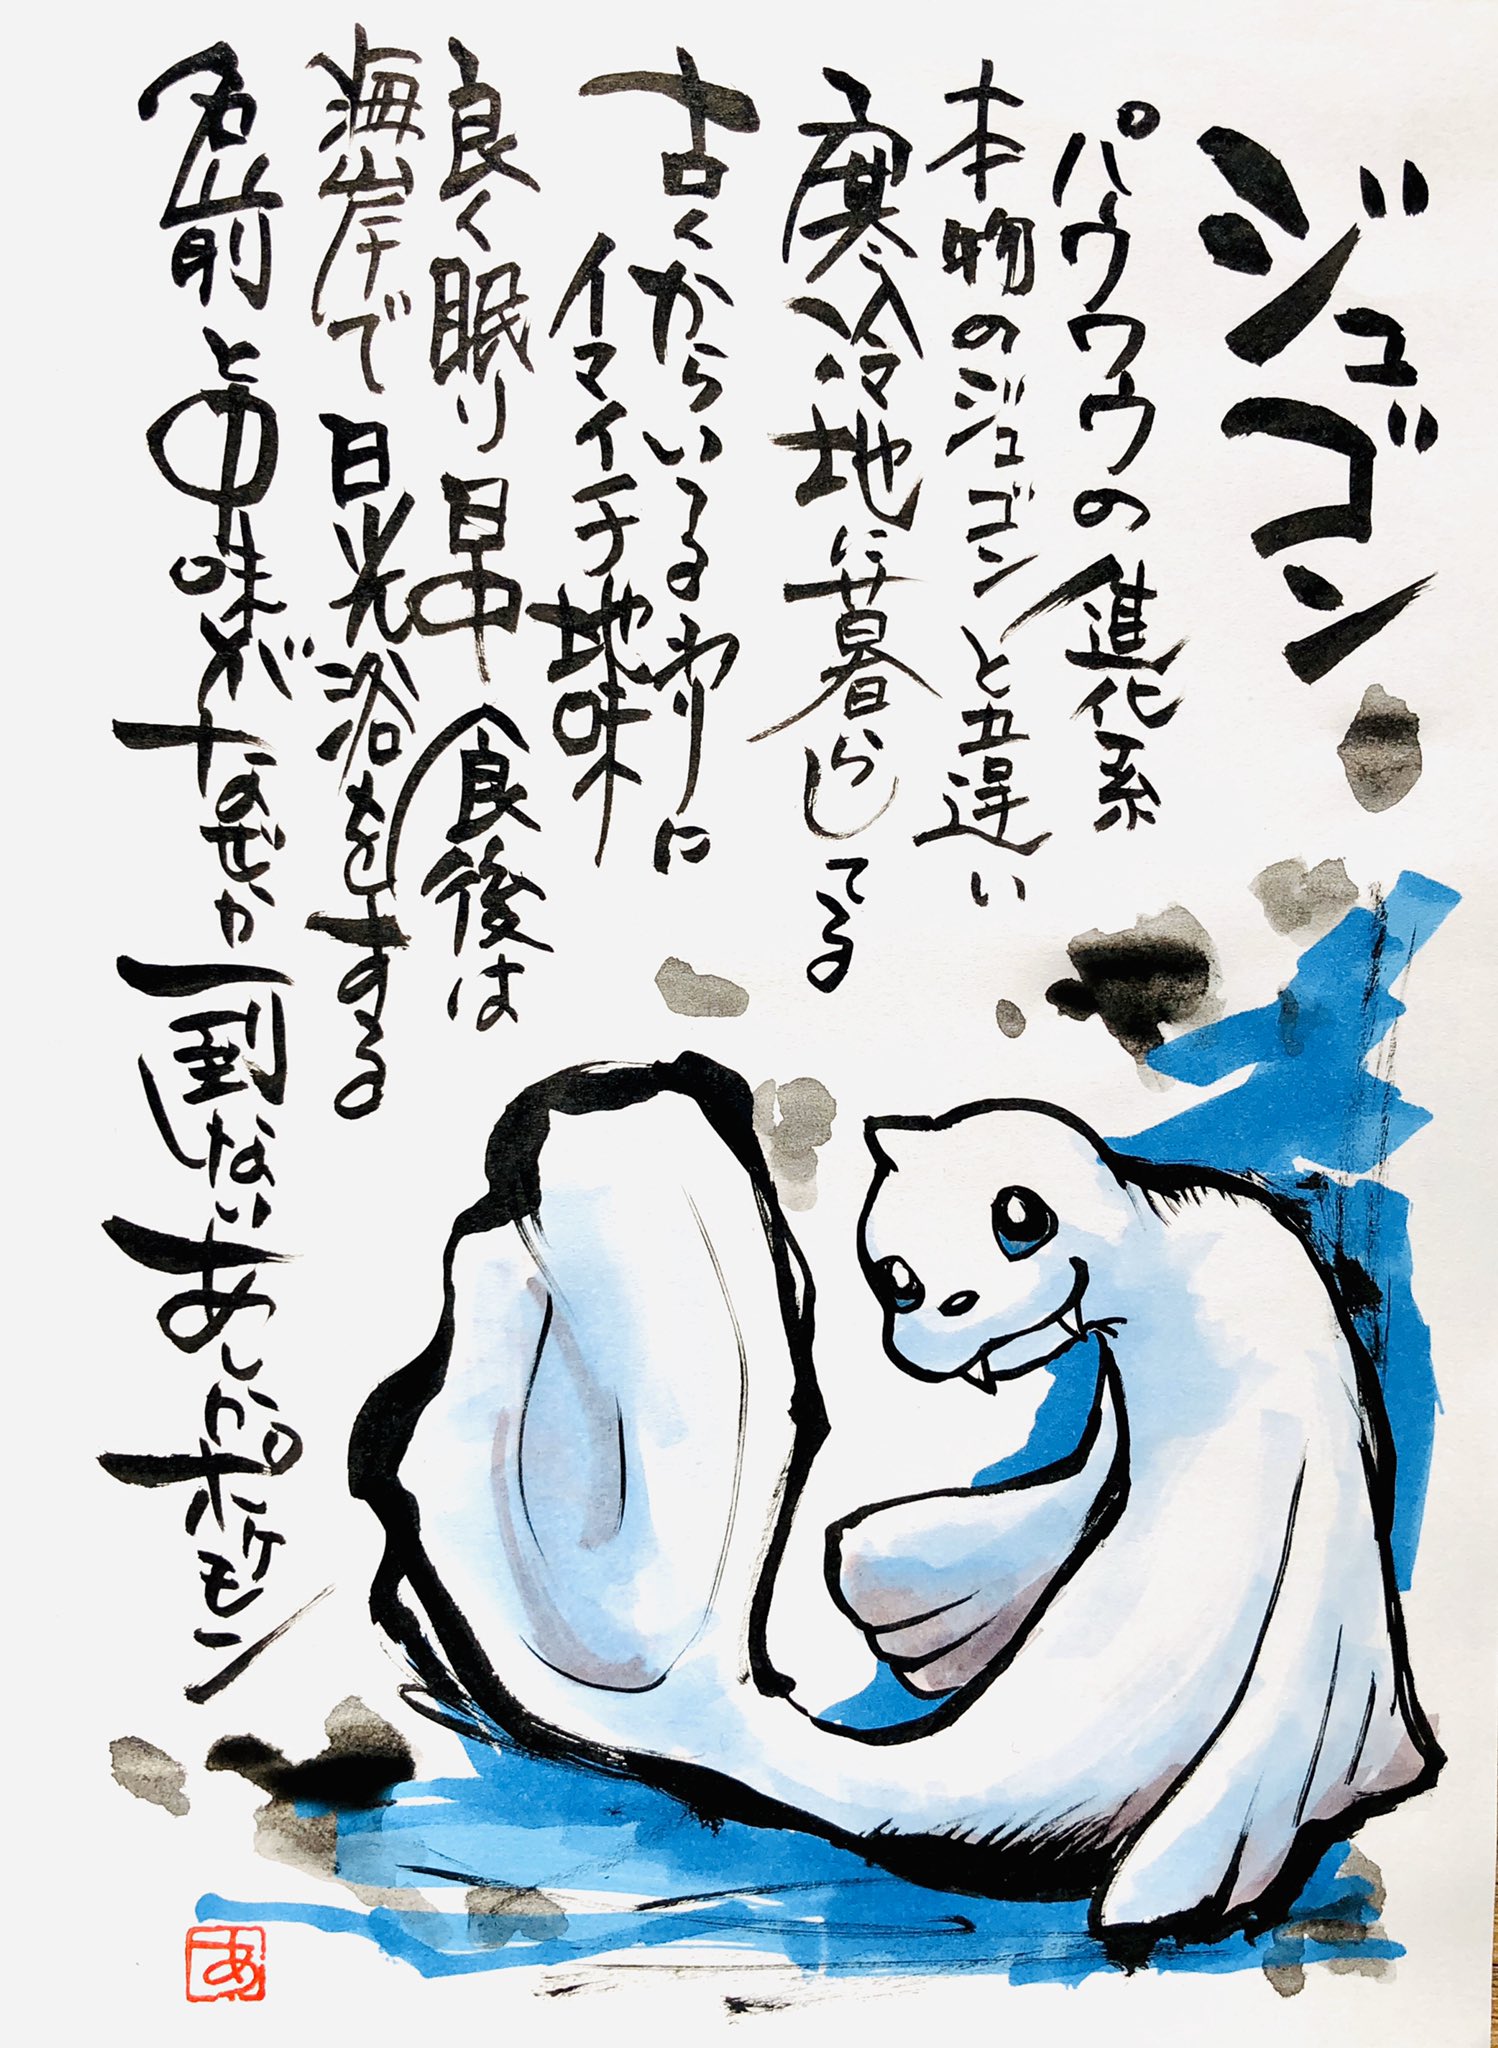 ジュゴン
パウワウの進化系
本物のジュゴンと五違い
寒冷地に暮らしてる
古くからいるわりに
イマイチ地味
良く眠り日中食後は
海岸で日光浴をする
名前と中味がなぜか一致しないあしかポケモン
あ